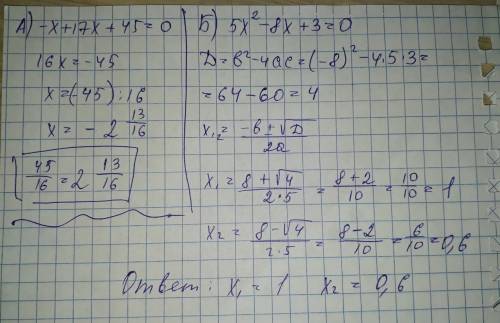 А) -x+17x+45=0
16x=-45
x=(-45):16
x= - 2 13/16
45/16 = 2 13/16
Б) 5x²-8x+3=0
D=b²-4ac=(-8)²-4·5·3=
=64-60=4
x₁,₂= (-b±√D)/2a
x₁= (8+√4)/(2·5) = (8+2)/10 = 10/10 = 1
x₂= (8-√4)/(2·5) = (8-2)/10 = 6/10 = 0,6
Ответ: x₁ = 1 x₂ = 0,6